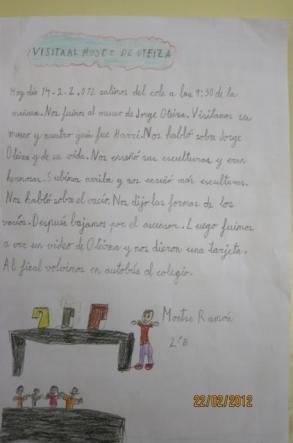 VISITA AL MUSEO DE OTEIZA
Hoy día 14-2-2.012 salimos del cole a las 9:30 de la
mañana. Nos fuimos al museo de Jorge Oteiza. Visitamos su
museo y nuestro guía fue Harri. Nos habló sobre Jorge
Oteiza y de su vida. Nos enseñó sus esculturas y eran
hermosas. Subimos arriba y nos enseñó más esculturas.
Nos habló sobre el vacío. Nos dijo las formas de los
vacíos. Después bajamos por el ascensor. Luego fuimos
a ver un video de Oteiza y nos dieron una tarjeta.
Al final volvimos en autobús al colegio.
Montse Ramón
2ºB
22/02/2012